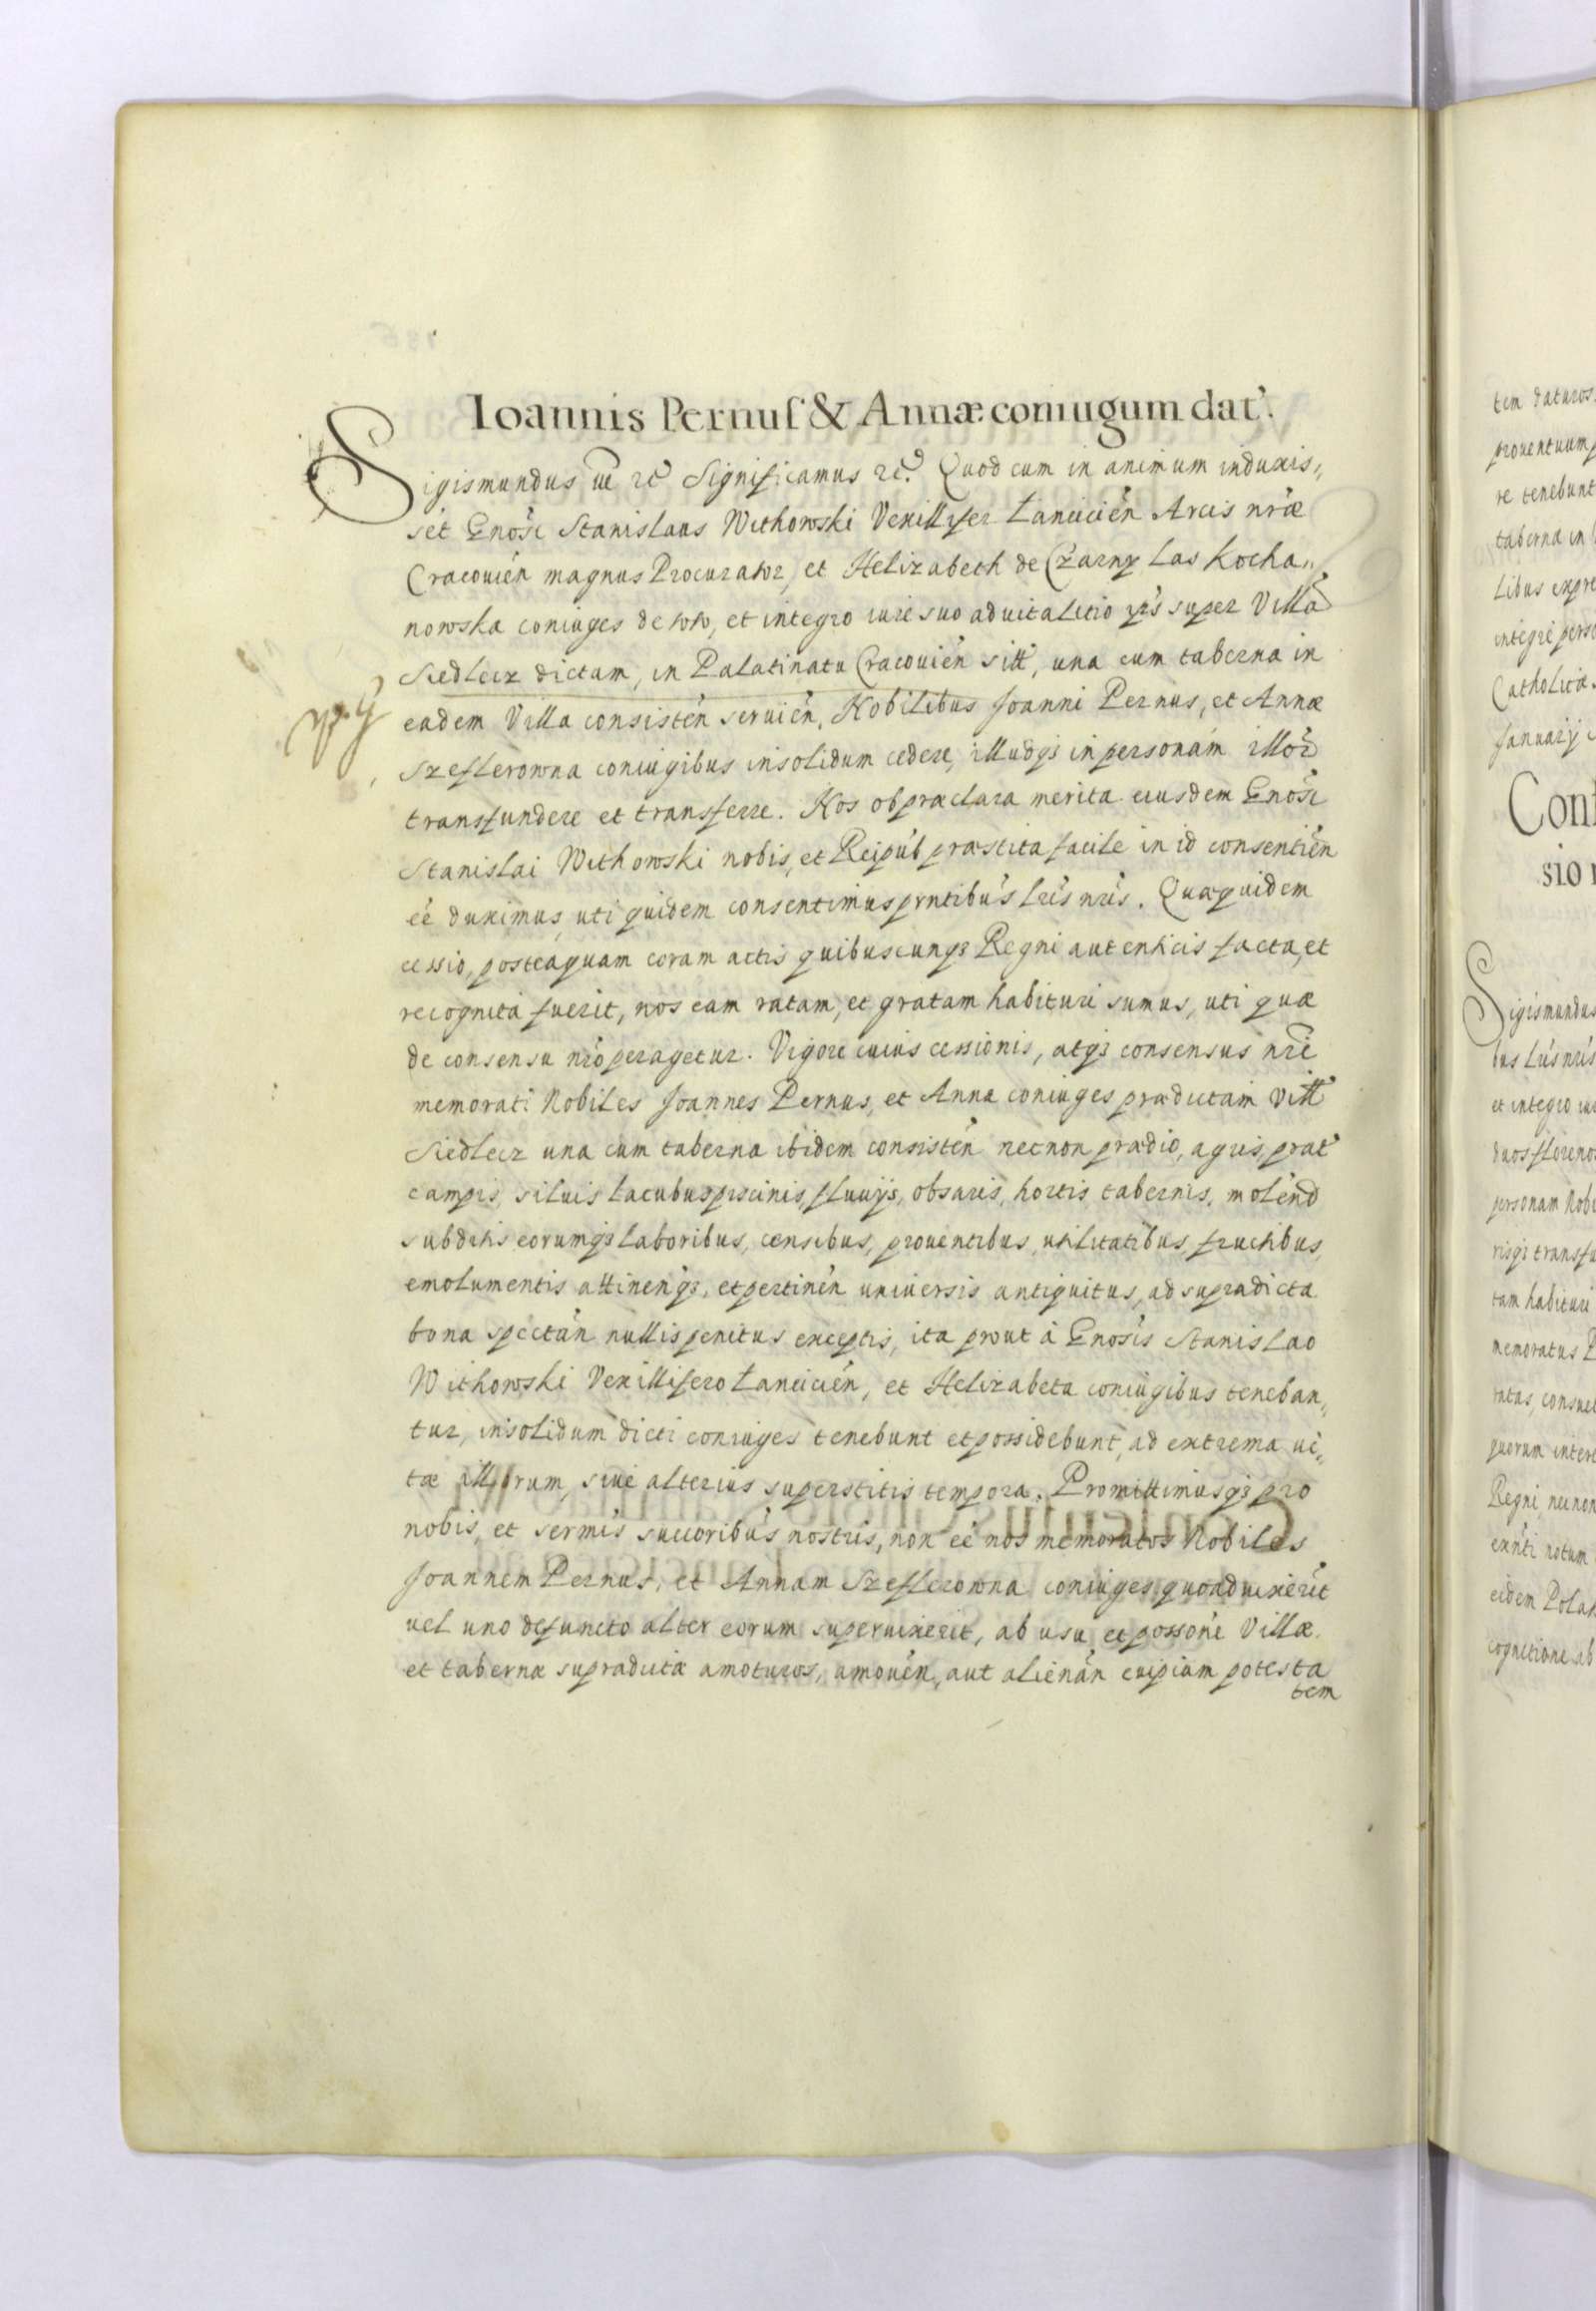 Ioannis Pernus & Annæ coniugum dat.
Sigismundus ut rc Significamus rc. Quod cum in animum induxis„
set Gnosi Stanislaus Withowski Vexillifer Lanciciēn Arcis nræ
Cracouiēn magnus Procurator, et Helizabeth de Czarny Las Kocha„
nowska coniuges de toto, et integro iure suo aduitalitio ipsis super Villā
Siedlecz dictam, in Palatinatu Cracouiēn sitt, una cum taberna in
eadem Villa consistēn seruiēn, Nobilibus Joanni Pernus, et Annæ
Szeflerowna coniugibus insolidum cedere, illudq3 in personam illor
transfundere et transferre. Nos ob præclara merita eiusdem Gnosi
Stanislai Withowski nobis, et Reipub præstita facile in id consentiēn
eē duximus, uti quidem consentimus pntibus lris nris. Quæquidem
cessio, posteaquam coram actis quibuscunq3 Regni autenticis facta, et
recognita fuerit, nos eam ratam, et gratam habituri sumus, uti quæ
de consensu nro peragetur. Vigore cuius cessionis, atq3 consensus nri
memorati Nobiles Joannes Pernus, et Anna coniuges prædictam Vill
Siedlecz una cum taberna ibidem consistēn necnon prædio, agris, prat
campis, siluis lacubus piscinis, fluuijs, obsaris, hortis, tabernis, molend
subditis eorumq3 laboribus, censibus, prouentibus, utilitatibus, fructibus,
emolumentis attinenq3, et pertinēn uniuersis antiquitus, ad supradicta
bona spectān nullis penitus exceptis, ita prout à Gnosis Stanislao
Withowski Vexillifero Lanciciēn, et Helizabeta coniugibus teneban„
tur, insolidum dicti coniuges tenebunt et possidebunt, ad extrema ui„
tæ illorum, siue alterius superstitis tempora. Promittimusq3 pro
nobis, et sermis succoribus nostris, non eē nos memoratos Nobiles
Joannem Pernus, et Annam Szeflerowna coniuges, quoad uixerīt
uel uno defuncto alter eorum superuixerit, ab usu, et possone Villæ
et tabernæ supradictæ amoturos, amouēn, aut alienān cuipiam potesta
tem
tem daturos
prouentuum
re tenebunt
taberna in
libus expre
integre perso
Catholicæ
January
Con
sio
Sigismundus
bus lris nris
et integro iu
duos floreno
personam Nobi
risq3 transfu
tam habituri
memoratus P
quorum intere
Regni, necnon
eidem Polan
cognitione ab